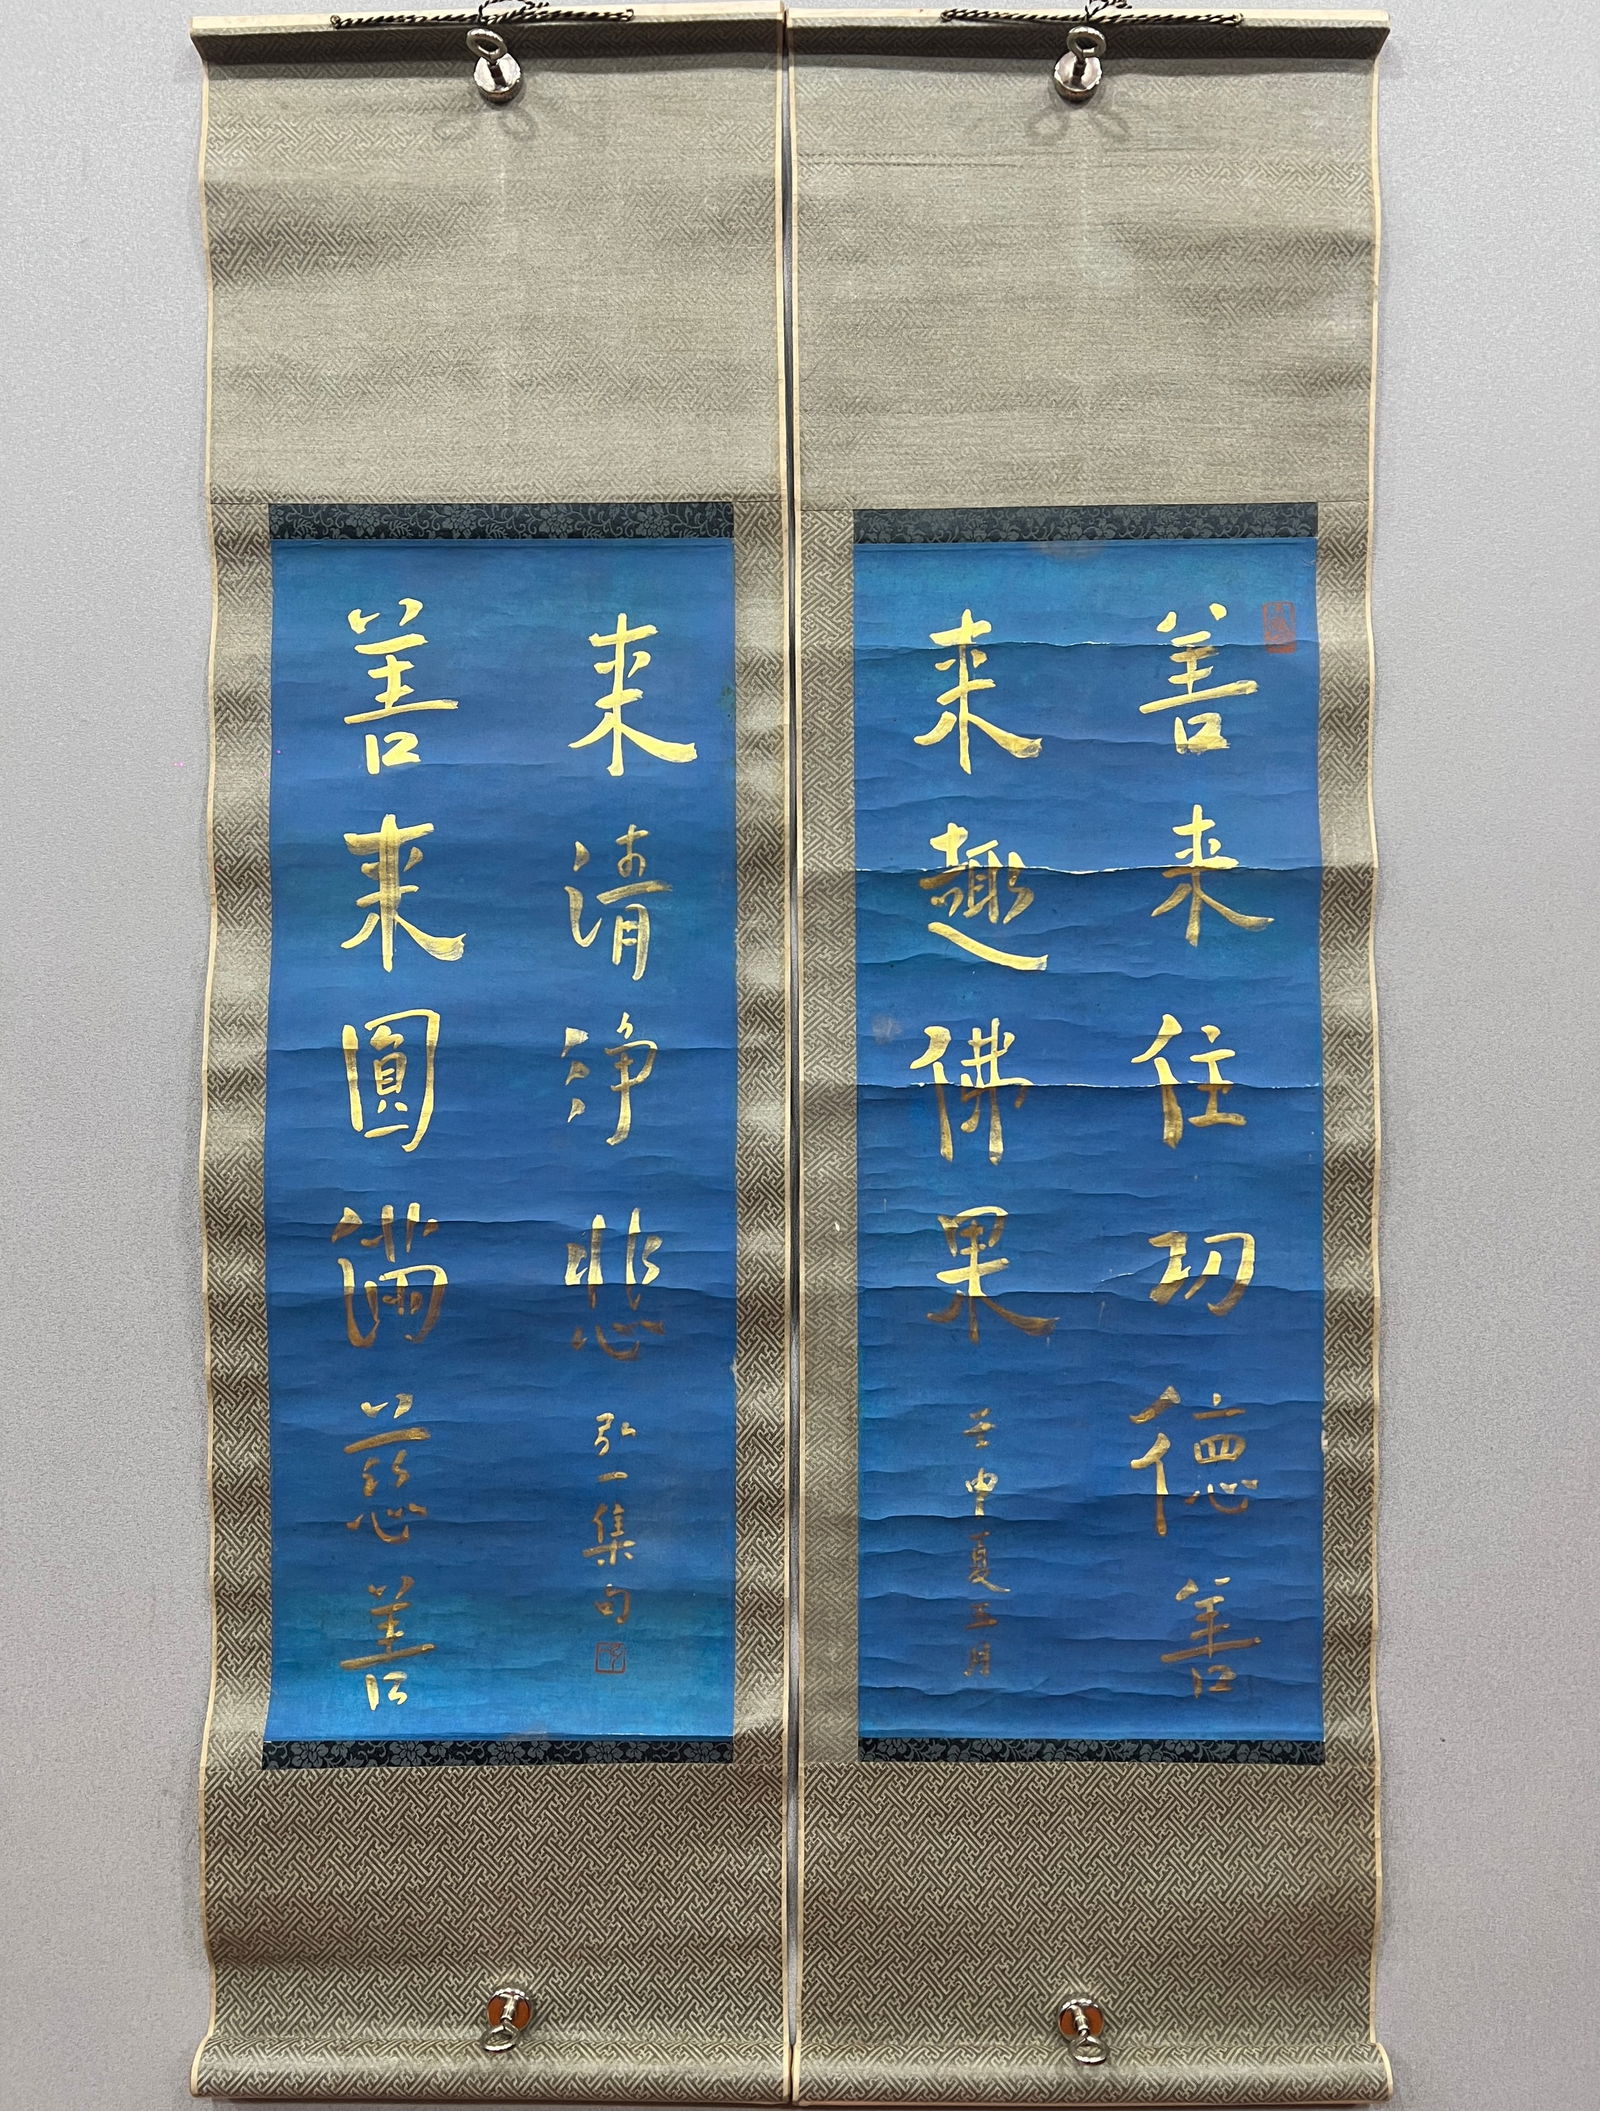 善来住功德善
来趣佛果
壬申夏五月
善来圓滿慈善
来清淨悲
弘一集句